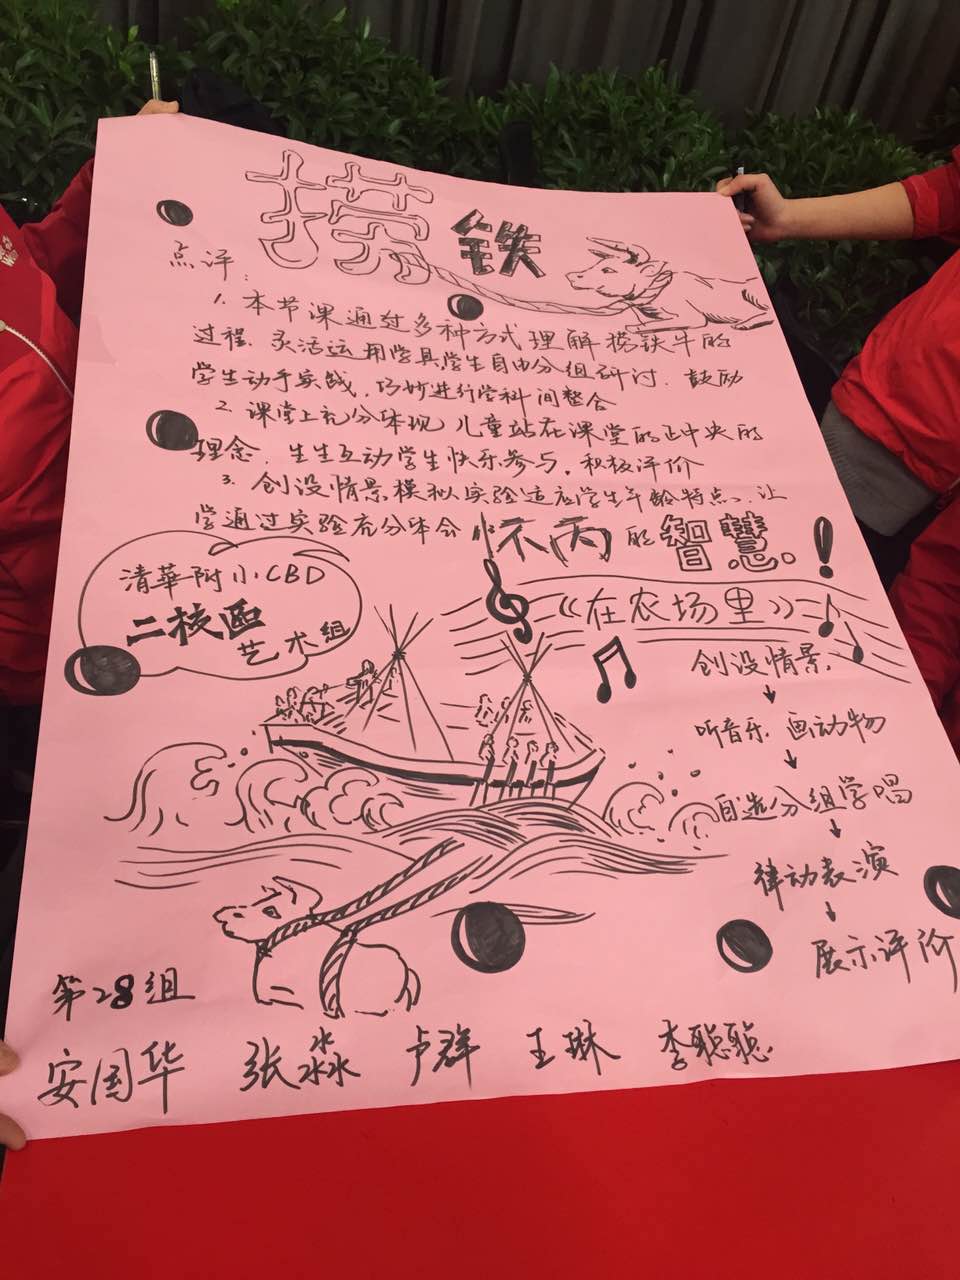 捞铁
点评:
1. 本节课通过多种方式理解捞铁牛的
过程、灵活运用学具学生自由分组研讨、鼓励
学生动手实践，巧妙进行学科间整合
2. 课堂上充分体现儿童站在课堂的正中央的
理念、生生互动学生快乐参与，积极评价
3. 创设情景模拟实验适应学生年龄特点、让
学通过实验充分体会怀丙的智慧!
清華附小CBD
二校区
艺术组
《在农场里》
创设情景
↓
听音乐、画动物
↓
自选分组学唱
↓
律动表演
↓
展示评价
第28组
安国华 张淼淼 卢群 王琳 李聪聪